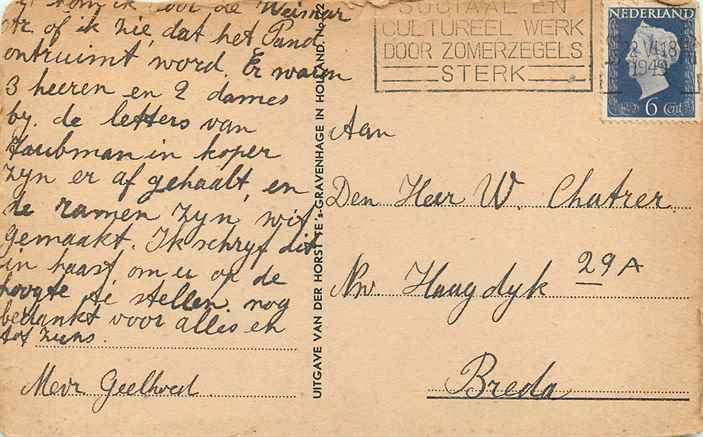 kom ik door de Weimar
str of ik zie, dat het Pand
ontruimt word. Er waren
3 heeren en 2 dames
by. de letters van
Taubman in koper
zyn er af gehaalt, en
de ramen zyn wit
gemaakt. Ik schryf dit
in haast, om u op de
hoogte te stellen. nog
bedankt voor alles en
tot ziens.
Mevr Geelhoed.
UITGAVE VAN DER HORST TE 's-GRAVENHAGE IN HOLLAND, No. 22
SOCIAAL EN
CULTUREEL WERK
DOOR ZOMERZEGELS
STERK
NEDERLAND
22 VI 18
1949
6 Cent
Aan
Den Heer W. Chatrer
Nw Haagdyk 29A
Breda